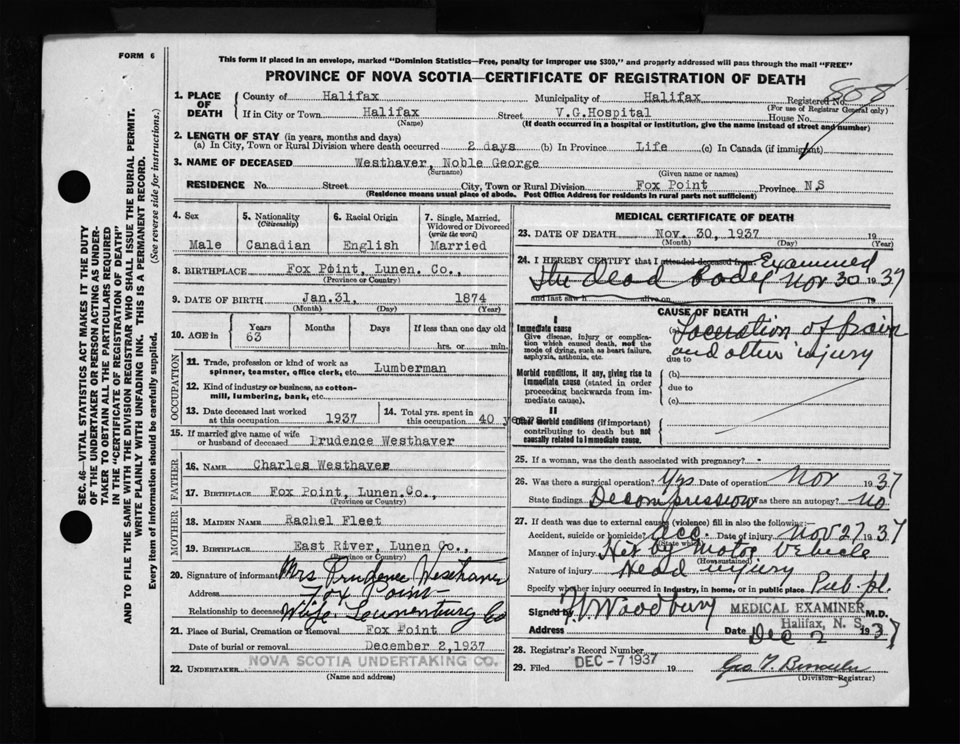 FORM 6
This form if placed in an envelope, marked "Dominion Statistics—Free, penalty for improper use $300," and properly addressed will pass through the mail "FREE"
PROVINCE OF NOVA SCOTIA—CERTIFICATE OF REGISTRATION OF DEATH
808
1. PLACE OF DEATH
County of Halifax Municipality of Halifax Registered No.
(For use of Registrar General only)
If in City or Town Halifax Street V.G.Hospital House No.
(Name) (If death occurred in a hospital or institution, give the name instead of street and number)
2. LENGTH OF STAY (in years, months and days)
(a) In City, Town or Rural Division where death occurred 2 days (b) In Province Life (c) In Canada (if immigrant)
3. NAME OF DECEASED Westhaver, Noble George
(Surname) (Given name or names)
RESIDENCE No. Street City, Town or Rural Division Fox Point Province N.S
(Residence means usual place of abode. Post Office Address for residents in rural parts not sufficient)
4. Sex
Male
5. Nationality
(Citizenship)
Canadian
6. Racial Origin
English
7. Single, Married, Widowed or Divorced
(write the word)
Married
8. BIRTHPLACE Fox Point, Lunen. Co.,
(Province or Country)
9. DATE OF BIRTH Jan.31, 1874
(Month) (Day) (Year)
10. AGE in
Years Months Days If less than one day old
63 hrs. or min.
OCCUPATION
11. Trade, profession or kind of work as spinner, teamster, office clerk, etc. Lumberman
12. Kind of industry or business, as cotton-mill, lumbering, bank, etc.
13. Date deceased last worked at this occupation 1937
14. Total yrs. spent in this occupation 40 years
15. If married give name of wife or husband of deceased Prudence Westhaver
FATHER
16. NAME Charles Westhaver
17. BIRTHPLACE Fox Point, Lunen.Co.,
(Province or Country)
MOTHER
18. MAIDEN NAME Rachel Fleet
19. BIRTHPLACE East River, Lunen Co.,
(Province or Country)
20. Signature of informant Mrs Prudence Westhaver
Address Fox Point
Relationship to deceased Wife Lunenburg Co
21. Place of Burial, Cremation or Removal Fox Point
Date of burial or removal December 2,1937
22. UNDERTAKER NOVA SCOTIA UNDERTAKING CO.
(Name and address)
MEDICAL CERTIFICATE OF DEATH
23. DATE OF DEATH Nov. 30, 1937 19
(Month) (Day) (Year)
24. I HEREBY CERTIFY that I attended deceased from Examined
the dead body Nov 30 1937
and last saw h alive on
CAUSE OF DEATH
I
Immediate cause
Give disease, injury or complication which caused death, not the mode of dying, such as heart failure, asphyxia, asthenia, etc.
(a) Laceration of brain
due to and other injury
Morbid conditions, if any, giving rise to immediate cause (stated in order proceeding backwards from immediate cause).
(b)
due to
(c)
II
Other morbid conditions (if important) contributing to death but not causally related to immediate cause.
25. If a woman, was the death associated with pregnancy?
26. Was there a surgical operation? Yes Date of operation Nov 1937
State findings Decompression Was there an autopsy? No
27. If death was due to external causes (violence) fill in also the following:—
Accident, suicide or homicide? acc. Date of injury Nov 27 1937
(State which)
Manner of injury Hit by Motor Vehicle
(How sustained)
Nature of injury Head injury
Specify whether injury occurred in industry, in home, or in public place Pub pl.
Signed by Woodbury MEDICAL EXAMINER M.D.
Halifax, N. S.
Address Date Dec 2 1937
28. Registrar's Record Number
29. Filed DEC - 7 1937 19 Geo. T.
(Division Registrar)
SEC. 46—VITAL STATISTICS ACT MAKES IT THE DUTY
OF THE UNDERTAKER OR PERSON ACTING AS UNDER-
TAKER TO OBTAIN ALL THE PARTICULARS REQUIRED
IN THE "CERTIFICATE OF REGISTRATION OF DEATH"
AND TO FILE THE SAME WITH THE DIVISION REGISTRAR WHO SHALL ISSUE THE BURIAL PERMIT.
WRITE PLAINLY WITH UNFADING INK. THIS IS A PERMANENT RECORD.
Every item of information should be carefully supplied. (See reverse side for instructions.)